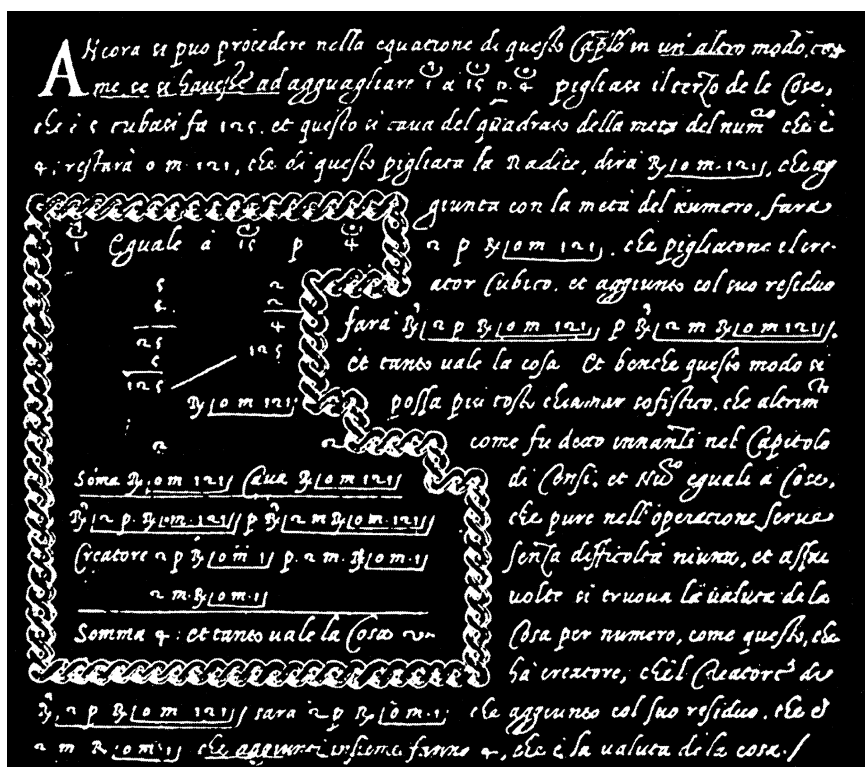 Ancora si puo procedere nella equatione di questo Cap.lo in un' altro modo, co-
me se si havesse ad agguagliare 1 a 15 p. 4 pigliasi il terzo de le Cose,
che è 5 cubasi fa 125, et questo si cava del quadrato della meta del num.ro che è
4, restarà 0 m. 121, che di questo pigliata la Radice, dirà R|0 m. 121|, che ag
giunta con la metà del numero, fara
2 p R|0 m 121|, che pigliatone il cre-
ator Cubico, et aggiunto col suo residuo
farà R³|2 p R|0 m 121|| p R³|2 m R|0 m 121||.
Et tanto vale la cosa Et benche questo modo si
possa piu tosto chiamar sofistico, che altrim.ti
come fu detto innanti nel Capitolo
di Censi, et Nu.ro eguali a Cose,
che pure nell' operatione serve
senza difficoltà niuna, et assai
volte si truova la valuta de la
Cosa per numero, come questo, che
hà creatore, chèl Creatore di
R³|2 p R|0 m 121|| sarà 2 p R|0 m. 1| che aggiunto col suo residuo, che è
2 m R|0 m 1| che aggiunti insieme fanno 4, che è la valuta de la cosa./
1 Eguale à 15 p 4
5 2
5 2
25 4
5 125
125
R|0 m 121|
2 2
Soma R|0 m 121| Cava R|0 m 121|
R³|2 p. R|0 m. 121|| p R³|2 m R|0 m 121||
Creatore 2 p R|0 m 1| p. 2 m. R|0 m. 1|
2 m. R|0 m 1|
Somma 4: et tanto vale la Cosa